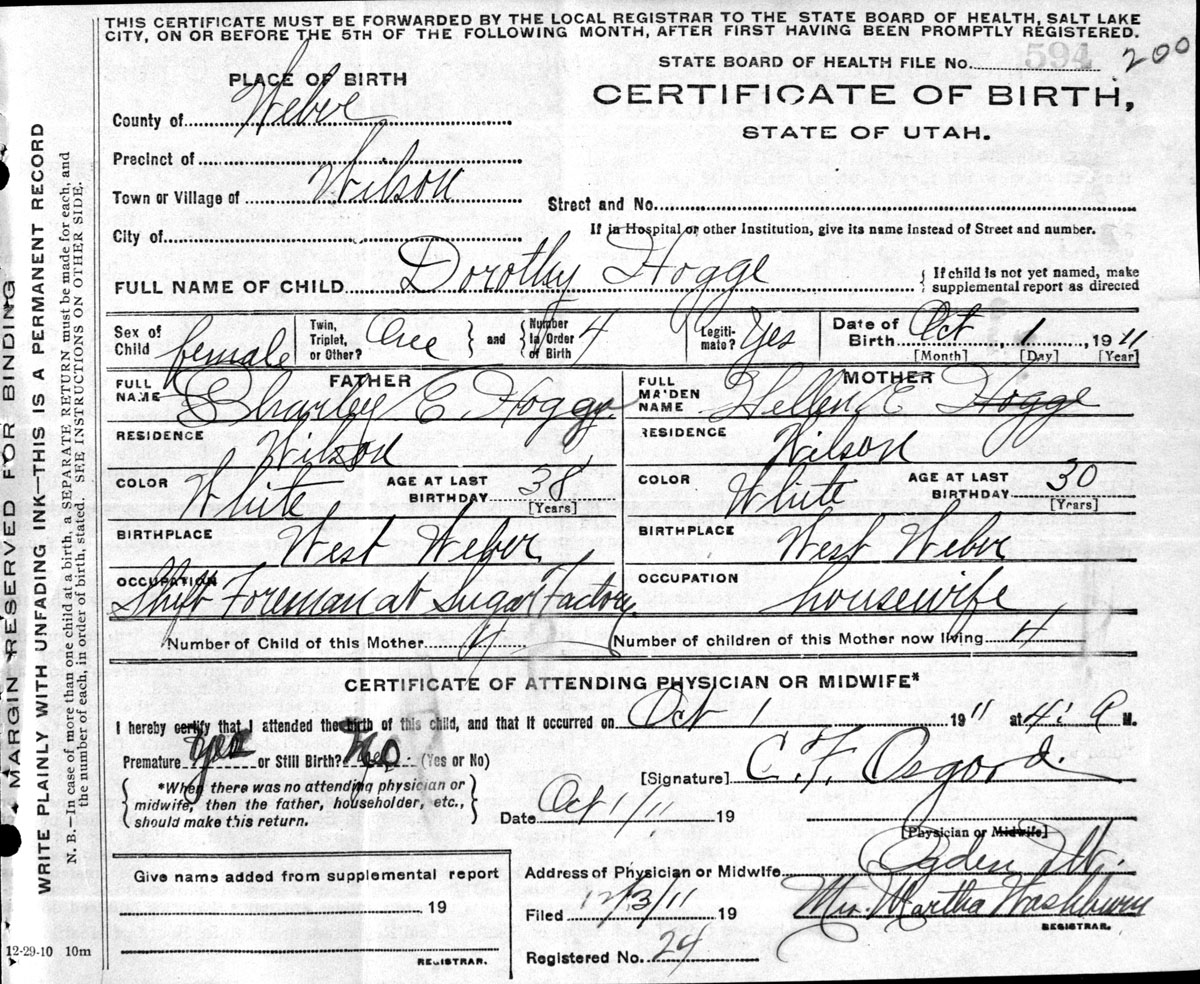 THIS CERTIFICATE MUST BE FORWARDED BY THE LOCAL REGISTRAR TO THE STATE BOARD OF HEALTH, SALT LAKE
CITY, ON OR BEFORE THE 5TH OF THE FOLLOWING MONTH, AFTER FIRST HAVING BEEN PROMPTLY REGISTERED.
STATE BOARD OF HEALTH FILE No. 594 200
PLACE OF BIRTH
CERTIFICATE OF BIRTH,
STATE OF UTAH.
County of Weber
Precinct of
Town or Village of Wilson
Street and No.
City of
If in Hospital or other Institution, give its name instead of Street and number.
FULL NAME OF CHILD Dorothy Hogge
If child is not yet named, make
supplemental report as directed
Sex of Child female
Twin, Triplet, or Other? One and Number in Order of Birth 4
Legiti-mate? Yes
Date of Birth Oct 1, 1911
[Month] [Day] [Year]
FATHER
FULL NAME Charley E Hogge
MOTHER
FULL MAIDEN NAME Hellen E Hogge
RESIDENCE Wilson
RESIDENCE Wilson
COLOR White AGE AT LAST BIRTHDAY 38 [Years]
COLOR White AGE AT LAST BIRTHDAY 30 [Years]
BIRTHPLACE West Weber
BIRTHPLACE West Weber
OCCUPATION Shift Foreman at Sugar Factory
OCCUPATION housewife
Number of Child of this Mother 4
Number of children of this Mother now living 4
CERTIFICATE OF ATTENDING PHYSICIAN OR MIDWIFE*
I hereby certify that I attended the birth of this child, and that it occurred on Oct 1 1911 at 4: A M.
Premature or Still Birth? No (Yes or No)
*When there was no attending physician or
midwife, then the father, householder, etc.,
should make this return.
[Signature] C. F. Osgood.
Date Oct 1/11 19
[Physician or Midwife]
Address of Physician or Midwife Ogden Ut.
Give name added from supplemental report
19
REGISTRAR.
Filed 12/3/11 19
Mrs. Martha Washburn
REGISTRAR.
Registered No. 24
12-29-10 10m
MARGIN RESERVED FOR BINDING
WRITE PLAINLY WITH UNFADING INK—THIS IS A PERMANENT RECORD
N. B.—In case of more than one child at a birth, a SEPARATE RETURN must be made for each, and
the number of each, in order of birth, stated. SEE INSTRUCTIONS ON OTHER SIDE.